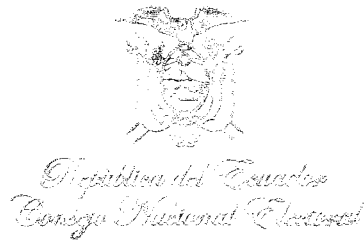 República del Ecuador
Consejo Nacional Electoral